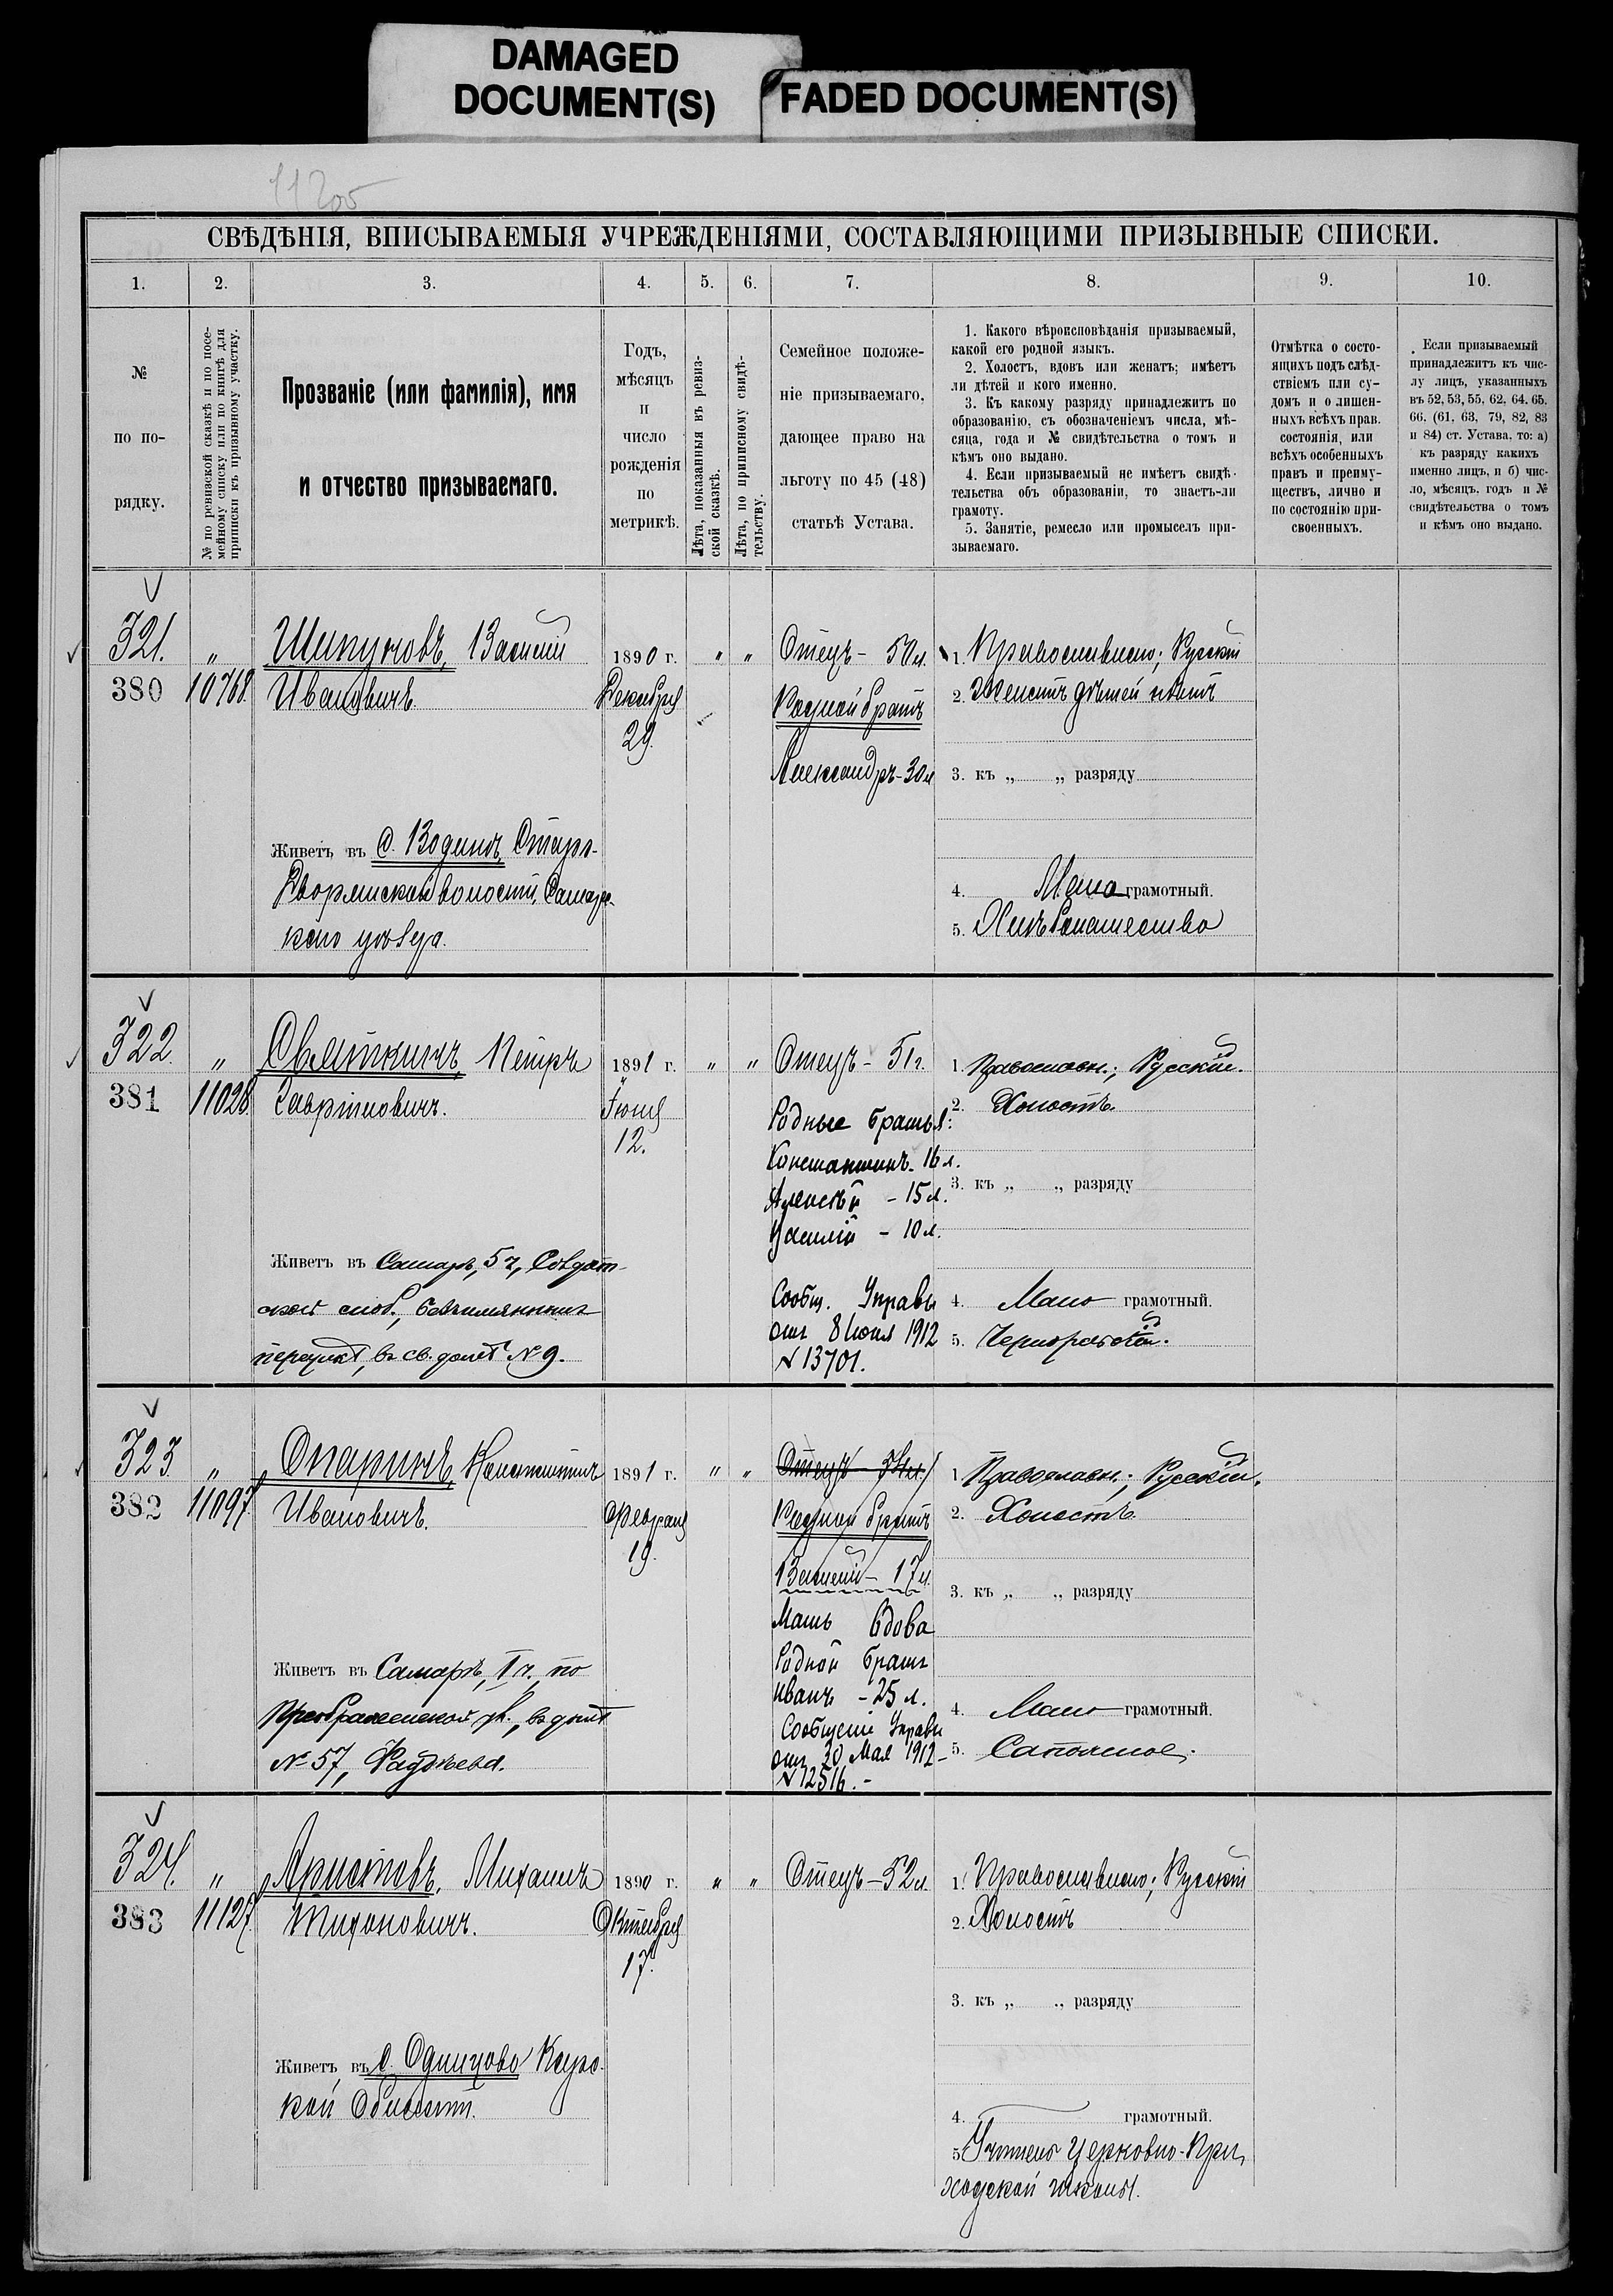 DAMAGED
DOCUMENT(S)
FADED DOCUMENT(S)
СВѢДѢНІЯ, ВПИСЫВАЕМЫЯ УЧРЕЖДЕНІЯМИ, СОСТАВЛЯЮЩИМИ ПРИЗЫВНЫЕ СПИСКИ.
1. 2. 3. 4. 5. 6. 7. 8. 9. 10.
№
по по-
рядку.
№ по ревизской сказкѣ и по посе-
мейному списку или по книгѣ для
приписки къ призывному участку.
Прозваніе (или фамилія), имя
и отчество призываемаго.
Годъ,
мѣсяцъ
и
число
рожденія
по
метрикѣ.
Лѣта, показанныя въ ревиз-
ской сказкѣ.
Лѣта, по приписному свидѣ-
тельству.
Семейное положе-
ніе призываемаго,
дающее право на
льготу по 45 (48)
статьѣ Устава.
1. Какого вѣроисповѣданія призываемый,
какой его родной языкъ.
2. Холостъ, вдовъ или женатъ; имѣетъ
ли дѣтей и кого именно.
3. Къ какому разряду принадлежитъ по
образованію, съ обозначеніемъ числа, мѣ-
сяца, года и № свидѣтельства о томъ и
кѣмъ оно выдано.
4. Если призываемый не имѣетъ свидѣ-
тельства объ образованіи, то знаетъ-ли
грамоту.
5. Занятіе, ремесло или промыселъ при-
зываемаго.
Отмѣтка о состо-
ящихъ подъ слѣд-
ствіемъ или су-
домъ и о лишен-
ныхъ всѣхъ прав.
состоянія, или
всѣхъ особенныхъ
правъ и преиму-
ществъ, лично и
по состоянію при-
своенныхъ.
Если призываемый
принадлежитъ къ чис-
лу лицъ, указанныхъ
въ 52, 53, 55, 62, 64, 65,
66, (61, 63, 79, 82, 83
и 84) ст. Устава, то: а)
къ разряду какихъ
именно лицъ, и б) чис-
ло, мѣсяцъ, годъ и №
свидѣтельства о томъ
и кѣмъ оно выдано.
321.
380
"
10768.
Шипуновъ, Василій
Ивановичъ.
1890 г.
Декабря
29.
" "
Отецъ – 50 л.
Родной братъ
Александръ – 30 л
1. Православное; Русскій
2. Женатъ дѣтей нѣтъ
3. къ „ „ разряду
4. Мало грамотный.
5. Хлѣбопашество
Живетъ въ с. Водино, Старо-
Дворянской волости, Самарс-
каго уѣзда.
322.
381
"
11028.
Святкинъ, Петръ
Гавріиловичъ.
1891 г.
Іюня
12.
" "
Отецъ – 51 г.
Родные братья:
Константинъ – 16 л.
Алексѣй – 15 л.
Василій – 10 л.
Сообщ. Управы
отъ 8 Іюня 1912
№ 13701.
1. Православн.; Русскій.
2. Холостъ.
3. къ „ „ разряду
4. Мало грамотный.
5. Чернорабочій.
Живетъ въ Самарѣ, 5 ч, Солдат-
ской слоб., безъимянныхъ
переулкѣ, въ св. домѣ № 9.
323
382
"
11097.
Опаринъ, Константинъ
Ивановичъ.
1891 г.
Февраля
19.
" "
Родной братъ
Василій – 17 л.
Мать вдова
Родной братъ
Иванъ – 25 л.
Сообщеніе Управы
отъ 30 Мая 1912 –
№ 12516. –
1. Православн.; Русскій.
2. Холостъ.
3. къ „ „ разряду
4. Мало грамотный.
5. Сапожное.
Живетъ въ Самарѣ, I ч., по
Преображенской ул., въ домѣ
№ 57, Фадѣева.
324.
383
"
11127.
Аристовъ, Михаилъ
Тихоновичъ.
1890 г.
Октября
17.
" "
Отецъ – 52 л.
1. Православное; Русскій
2. Холостъ
3. къ „ „ разряду
4. грамотный.
5. Учитель Церковно-При-
ходской школы.
Живетъ въ с. Одинцово Карс-
кой Области.